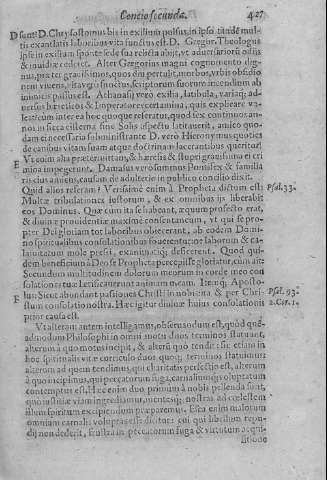 Concio secunda. 427
D sunt: D. Chrysostomus bis in exilium pulsus, in ipso tandē mul-
tis exantlatis laboribus vita functus est. D. Gregor. Theologus
ipse in exilium sponte se de sua relicta abijt, vt aduersariorū odiis
& inuidiæ cederet. Alter Gregorius magni cognomento dig-
nus, præter grauissimos, quos diu pertulit, morbos, vrbis obsidio
nem
inimicis passus est. Athanasij vero exilia, latibula, variaq; ad-
versus hæreticos & Imperatores certamina, quis explicare va-
leat? cum inter ea hoc quoque referatur, quod sex continuos an-
nos in sicca cisterna sine Solis aspectu latitauerit, amico quo-
dam ei necessaria subministrante D. vero Hieronymus quoties
de canibus vitam suam atque doctrinam lacerantibus queritur?
E Vt enim alia prætermittam, & hæresis & stupri grauissima ei cri
mina impegerunt. Damasus vero summus Pontifex & familia
ris eius amicus, causam de adulterio in publico concilio dixit.
Quid alios referam? Verissimè enim à Propheta dictum est: Psal. 33.
Multæ tribulationes iustorum, & ex omnibus ijs liberabit
eos Dominus. Quæ cum ita se habeant, æquum profecto erat,
& diuinæ prouidentiæ maximè consentaneum, vt qui se pro-
pter Dei gloriam tot laboribus obiecerant, ab eodem Domi-
no spiritualibus consolationibus fouerentur: ne laborum & ca-
lamitatum mole pressi, examinati deficerent. Quod qui-
dem beneficium à Deo se Propheta percepisse gloriatur, cum ait:
Secundum multitudinem dolorum meorum in corde meo con
solationes tuæ lætificauerunt animam meam. Itemq; Aposto- Psal. 93.
F lus: Sicut abundant passiones Christi in nobis, ita & per Chri-
stum consolatio nostra. Hæc igitur diuinæ huius consolationis 2. Cor. 1.
prior causa est.
Vt alteram autem intelligamus, obseruandum est, quòd quē-
admodum Philosophi in omni motu duos terminos statuunt,
alterum à quo motus incipit, & alterū quò tendit: sic etiam in
hoc spiritalis vitæ curriculo duo, quoq; terminos statuimus
alterum ad quem tendimus, qui charitatis perfectio est, alterum
à quo incipimus, qui peccatorum fuga, carnaliumq; voluptatum
contemptus est. Hæc enim duo primum à nobis
iustitiæ viam ingredimur, mentesq; nostras ad cœlestem
illum spiritum excipiendum præparemus. Esca enim malorum
omnium carnalis voluptas est: dicitur: cui qui libellum repu-
dij non dederit, frustra in peccatorum fuga & virtutum acqui-
sitione